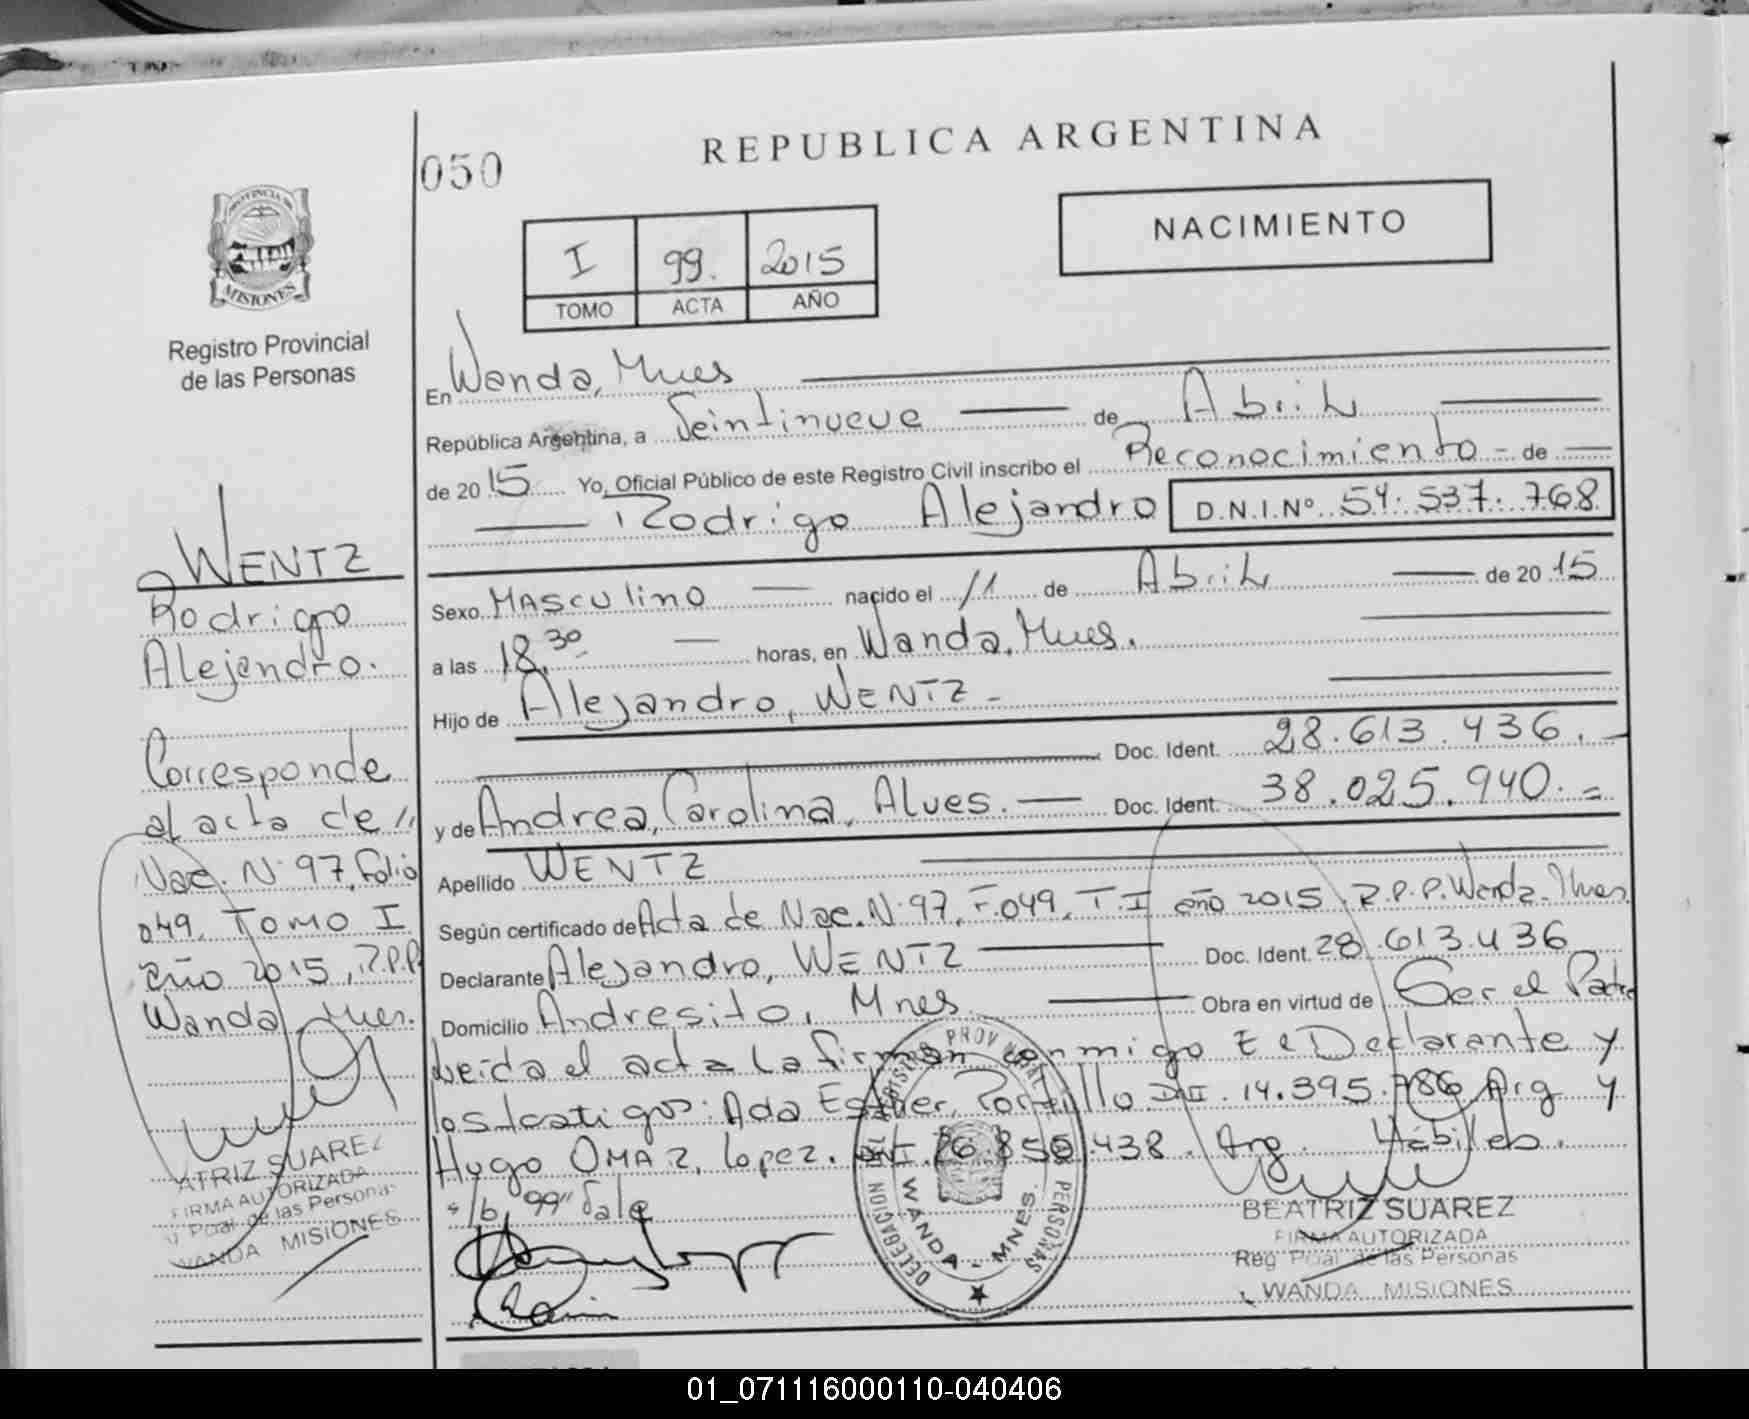 REPUBLICA ARGENTINA
050
NACIMIENTO
I 99. 2015
TOMO ACTA AÑO
PROVINCIA DE
MISIONES
Registro Provincial
de las Personas
WENTZ
Rodrigo
Alejandro.
Corresponde
al acta de //
Nac. N° 97, Folio
049, TOMO I
año 2015, R.P.P.
Wanda, Mnes.
ATRIZ SUAREZ
FIRMA AUTORIZADA
Pcial de las Personas
WANDA MISIONES
En Wanda, Mnes
República Argentina, a Veintinueve de Abril
de 2015 Yo, Oficial Público de este Registro Civil inscribo el Reconocimiento - de
Rodrigo Alejandro D.N.I.Nº 54.537.768
Sexo Masculino nacido el 11 de Abril de 2015
a las 18,30 horas, en Wanda, Mnes.
Hijo de Alejandro, WENTZ -
Doc. Ident. 28.613.436.-
y de Andrea, Carolina, Alves. Doc. Ident. 38.025.940.=
Apellido WENTZ
Según certificado de Acta de Nac. N° 97, F.049, T.I año 2015, R.P.P. Wanda. Mnes
Declarante Alejandro, WENTZ Doc. Ident. 28.613.436
Domicilio Andresito, Mnes Obra en virtud de Ser el Padre
Leída el acta la firman conmigo El Declarante y
los testigos: Ada Esther, Portillo DNI. 14.395.786 Arg y
Hugo OMAR, Lopez. DNI. 26.850.438. Arg. Hábiles.
s/b, "99" Vale
DELEGACION DEL REGISTRO PROVINCIAL PERSONAS
WANDA - MNES.
BEATRIZ SUAREZ
FIRMA AUTORIZADA
Reg Pcial de las Personas
WANDA MISIONES
01_071116000110-040406